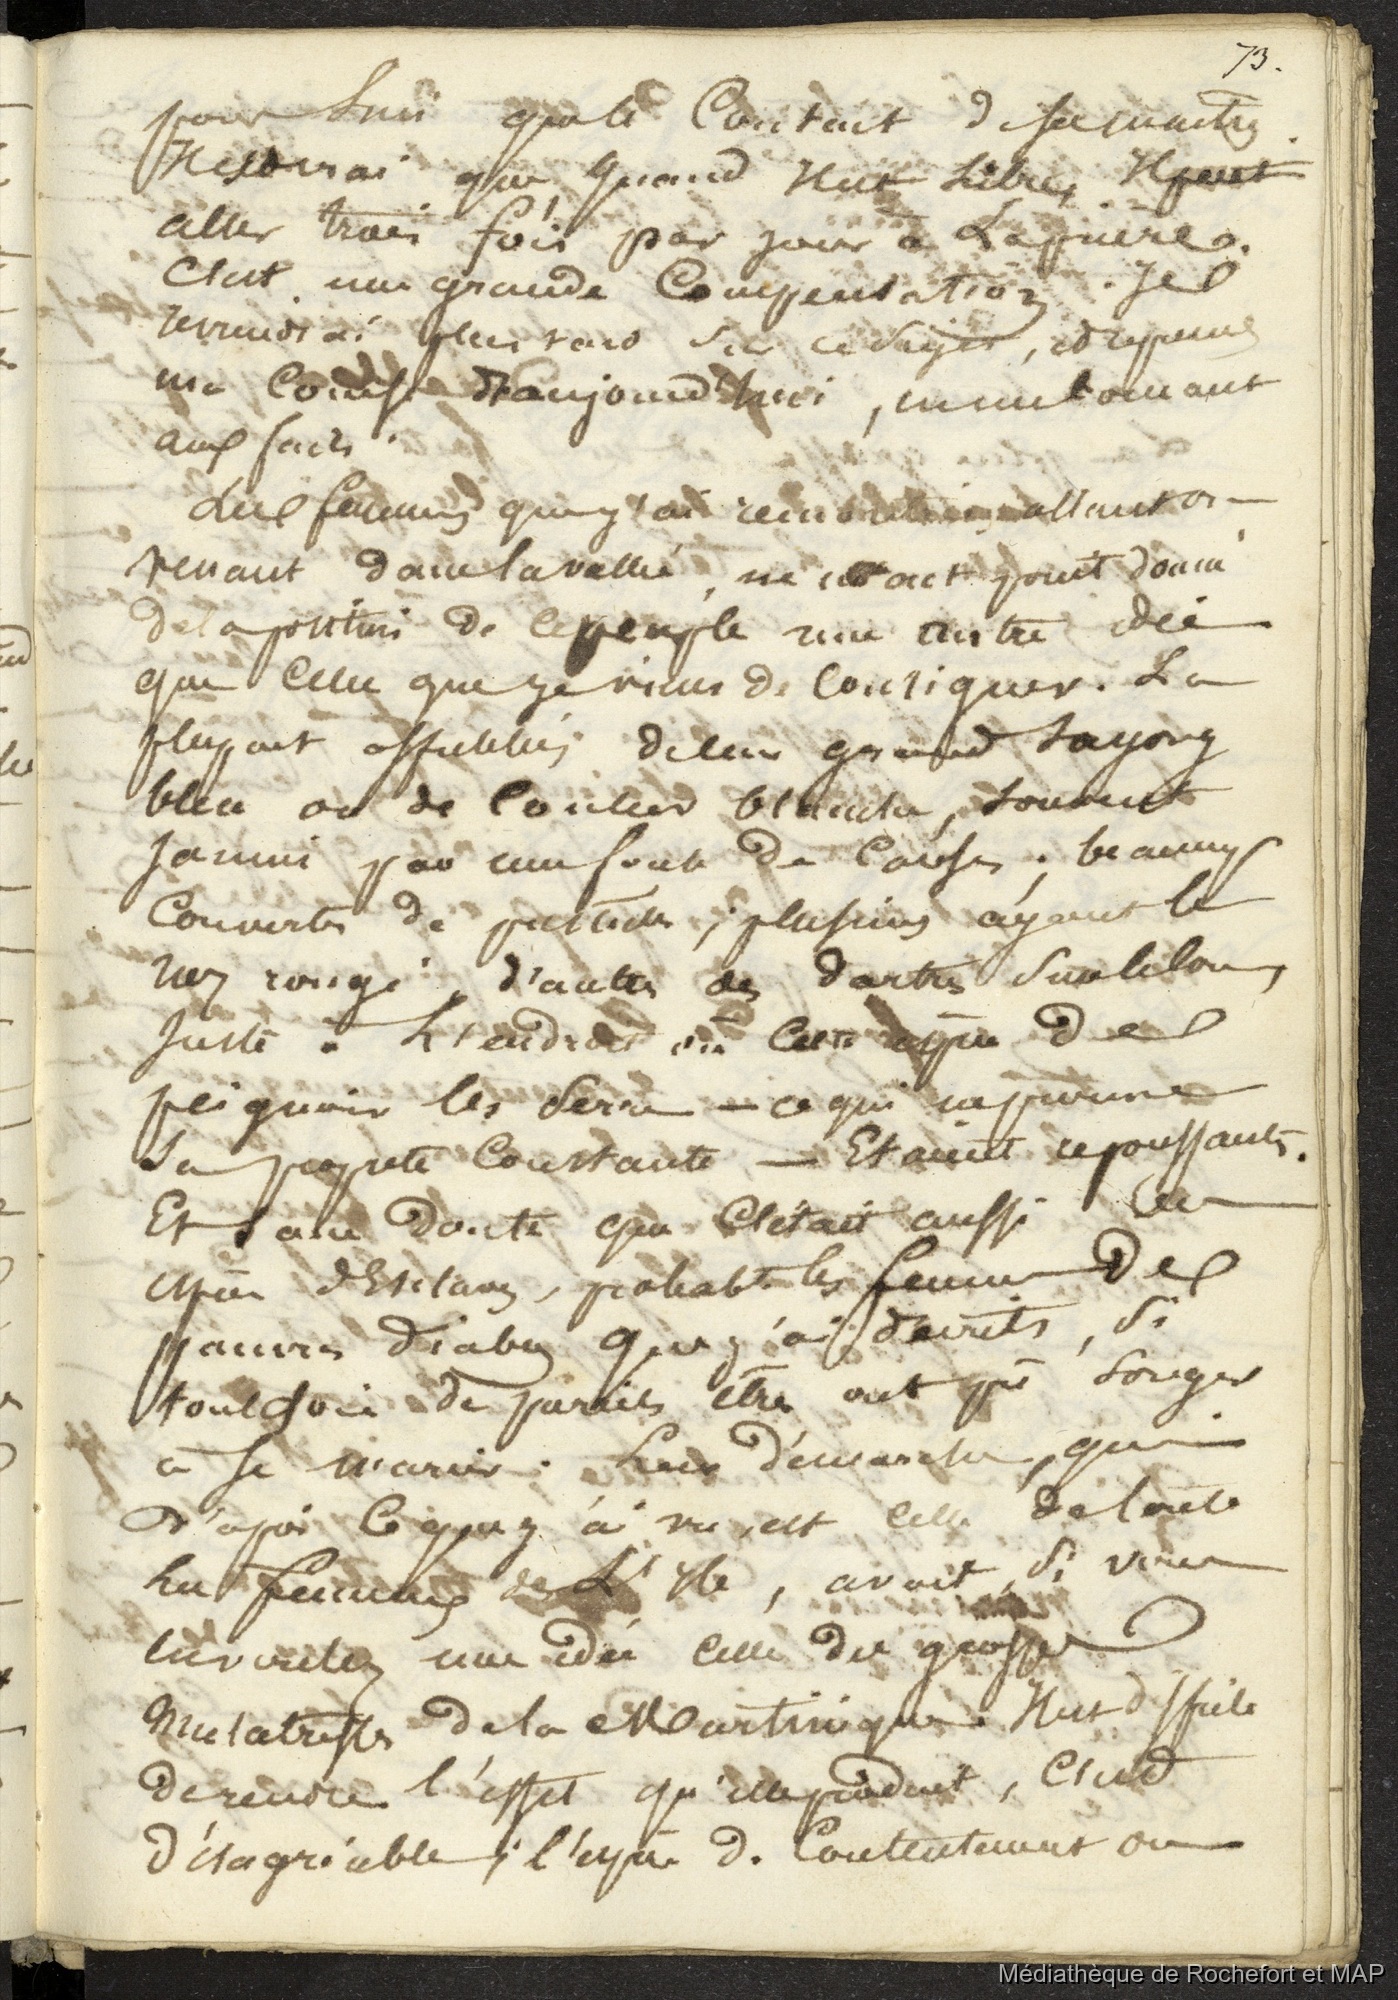 73.
pour lui que le Contact de ses maitres.
Il est vrai que quand il est libre, Il peut
aller trois fois par jour à La prière.
C'est une grande Compensation. Je
reviendrai plus tard sur ce sujet, et reprens
ma Course d'aujourd'hui, en me bornant
aux faits.
Les femmes que j'ai rencontrées, allant ou
venant dans la vallée, ne m'ont point donné
de la position de ce peuple une autre idée
que Celle que je viens de Consigner. La
plupart affublées de leur grand sayong
bleu ou de Couleur blanche, souvent
jauni par une foule de Causes; beaucoup
Couvertes de pustules; plusieurs ayant le
nez rongé, d'autres des dartres sur le col,
juste à L'endroit où Cette espèce de
peignoir les serre – ce qui
sa propreté Constante – Etaient repoussants.
Et sans doute que C'était aussi une
espèce d'Esclaves, probabt. les femmes des
pauvres diables que j'ai décrits, si
toutefois de pareils êtres ont pu songer
à se marier. Leur démarche, qui
d'après Ce que j'ai vu, est celle de toutes
les femmes de L'Ile, avait, si vous
en voulez une idée Celle des grosses
Mulatresses de la Martinique. Il est difficile
de rendre l'effet qu'elle produit, C'est
désagréable; l'espèce de Contentement ou
Médiathèque de Rochefort et MAP